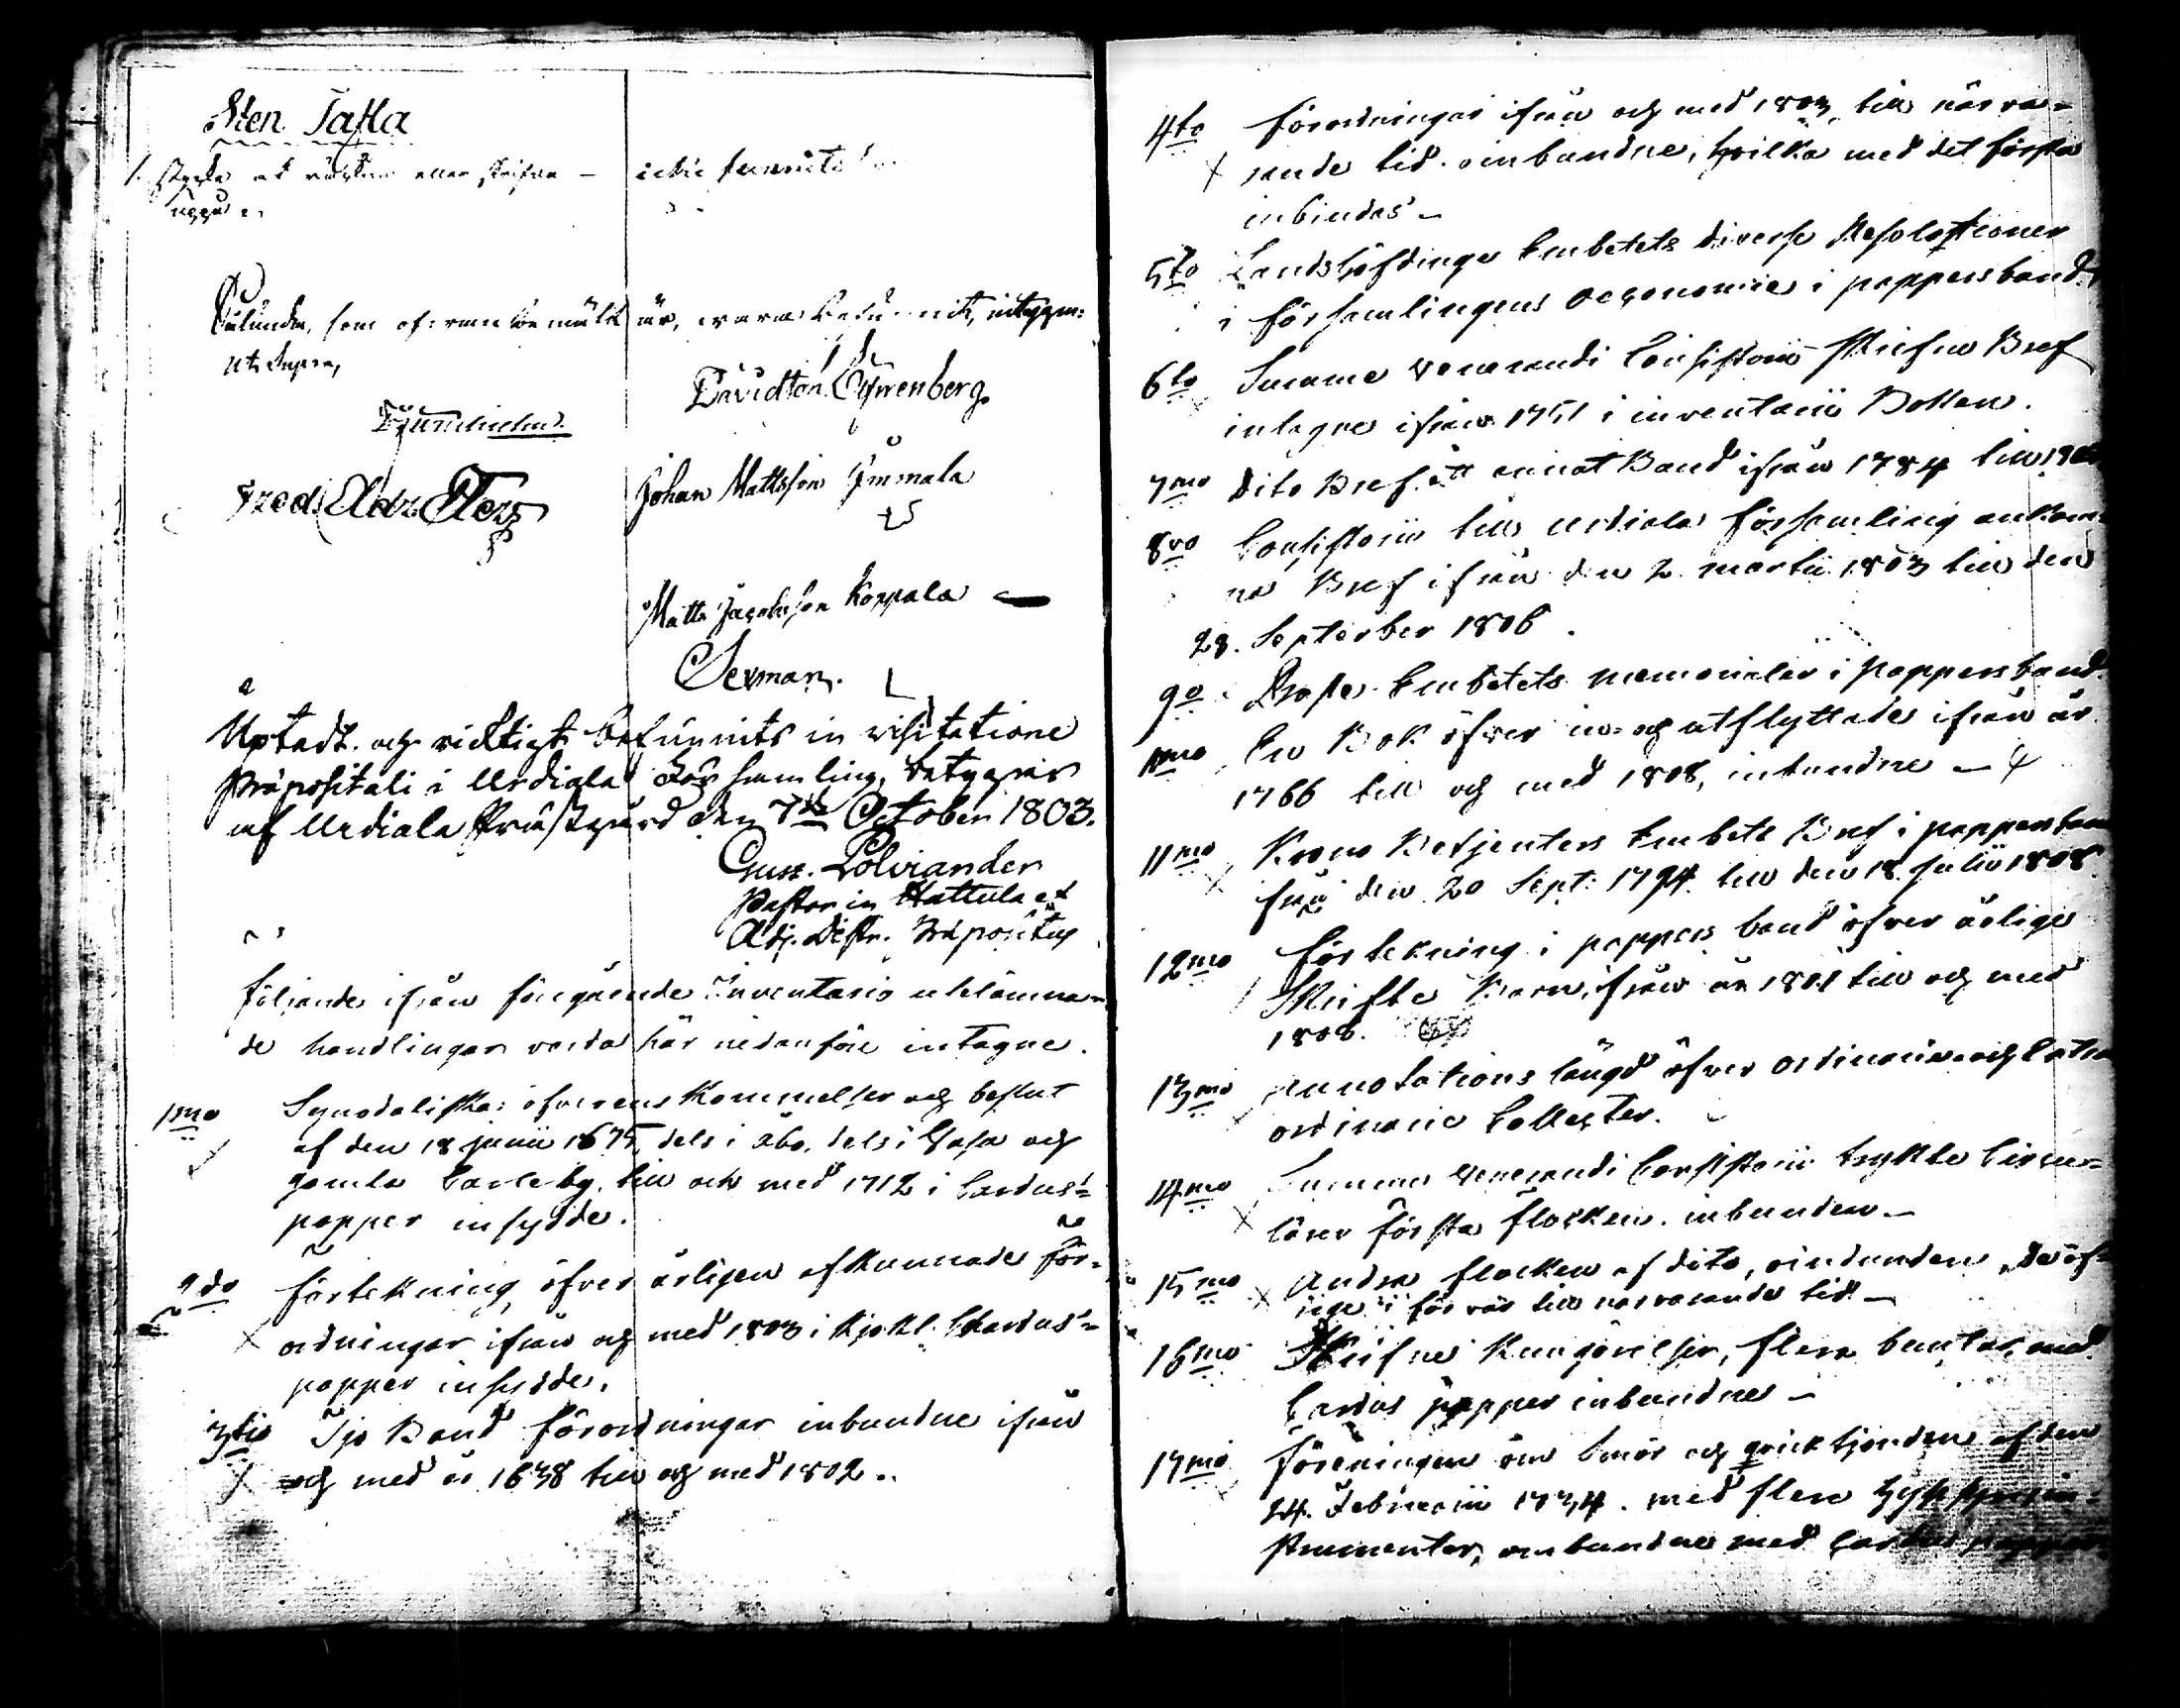 Sten Tafla
1. stycke at räkna eller skrifva — icke funnits
uppå
Sålunda, som ofvanbemält är, vara befunnit, intyga:
ut Supra,
David Thom. Lyrenberg.
Fred. Eldr.
Johan Mattsson Immala
Matts Jacobsson Koppala
Sexman.
Uptedt och riktigt befunnits in visitatione
Præpositali i Urdiala Församling, betygar
af Urdiala Prästgård den 7de October 1803.
Gust. Polviander
Pastor in Hattula et
Adj. Distr. Præpositus
Följande ifrån föregående Inventario utelämna-
de handlingar vorda här nedanföre intagne.
1mo Synodaliska öfverens kommelser och beslut
af den 18 junii 1675, dels i Åbo, dels i Wasa och
gamla Carleby, till och med 1712 i Cardus-
papper insydde.
2do Förtekning öfver årligen afkunnade för-
ordningar ifrån och med 1803 i Cardus-
papper insydde.
3tio Tju Band förordningar inbundne ifrån
och med år 1638 till och med 1802.
4to Förordningar ifrån och med 1803, till närva-
rande tid. oinbundne, hvilka med det första
inbindas —
5to Landshöfdinge Embetets diverse Resolutioner
i församlingens oeconomie i pappersband.
6to Summe Venerandi Consistorii Skrifne Bref
intagne ifrån 1751 i inventarii Boken.
7mo Dito Bref. ett annat Band ifrån 1784 till
8vo Consistorii till Urdiala församling ankom-
na Bref ifrån den 2 martii 1803 till den
28. September 1806.
9o Proste Embetets memorialer i pappersband.
10mo En Bok öfver in- och utflyttade ifrån år
1766 till och med 1808, inbundne —
11mo Krono Betjenters Embets Bref i pappersband
från den 20 Sept: 1794 till den 18 Julii 1808.
12mo Förtekning i pappers band öfver årlige
Skrifte Barn, ifrån år 1801 till och med
1808.
13mo Annotations längd öfver ordinarie och extra
ordinarie Collecter.
14mo Summe Venerandi Consistorii tryckte Circu-
lärer första flocken. inbunden —
15mo Andra flocken af dito, oinbunden, de öf-
rige i för var till närvarande tid —
16mo Skrifne Kungörelser, flera buntar, med
Cardus papper inbundne —
17mo Föreningen om Smör och qvicktjonden af den
24. Februarii 1734. med flere
strumenter, inbundne med Cardus papper